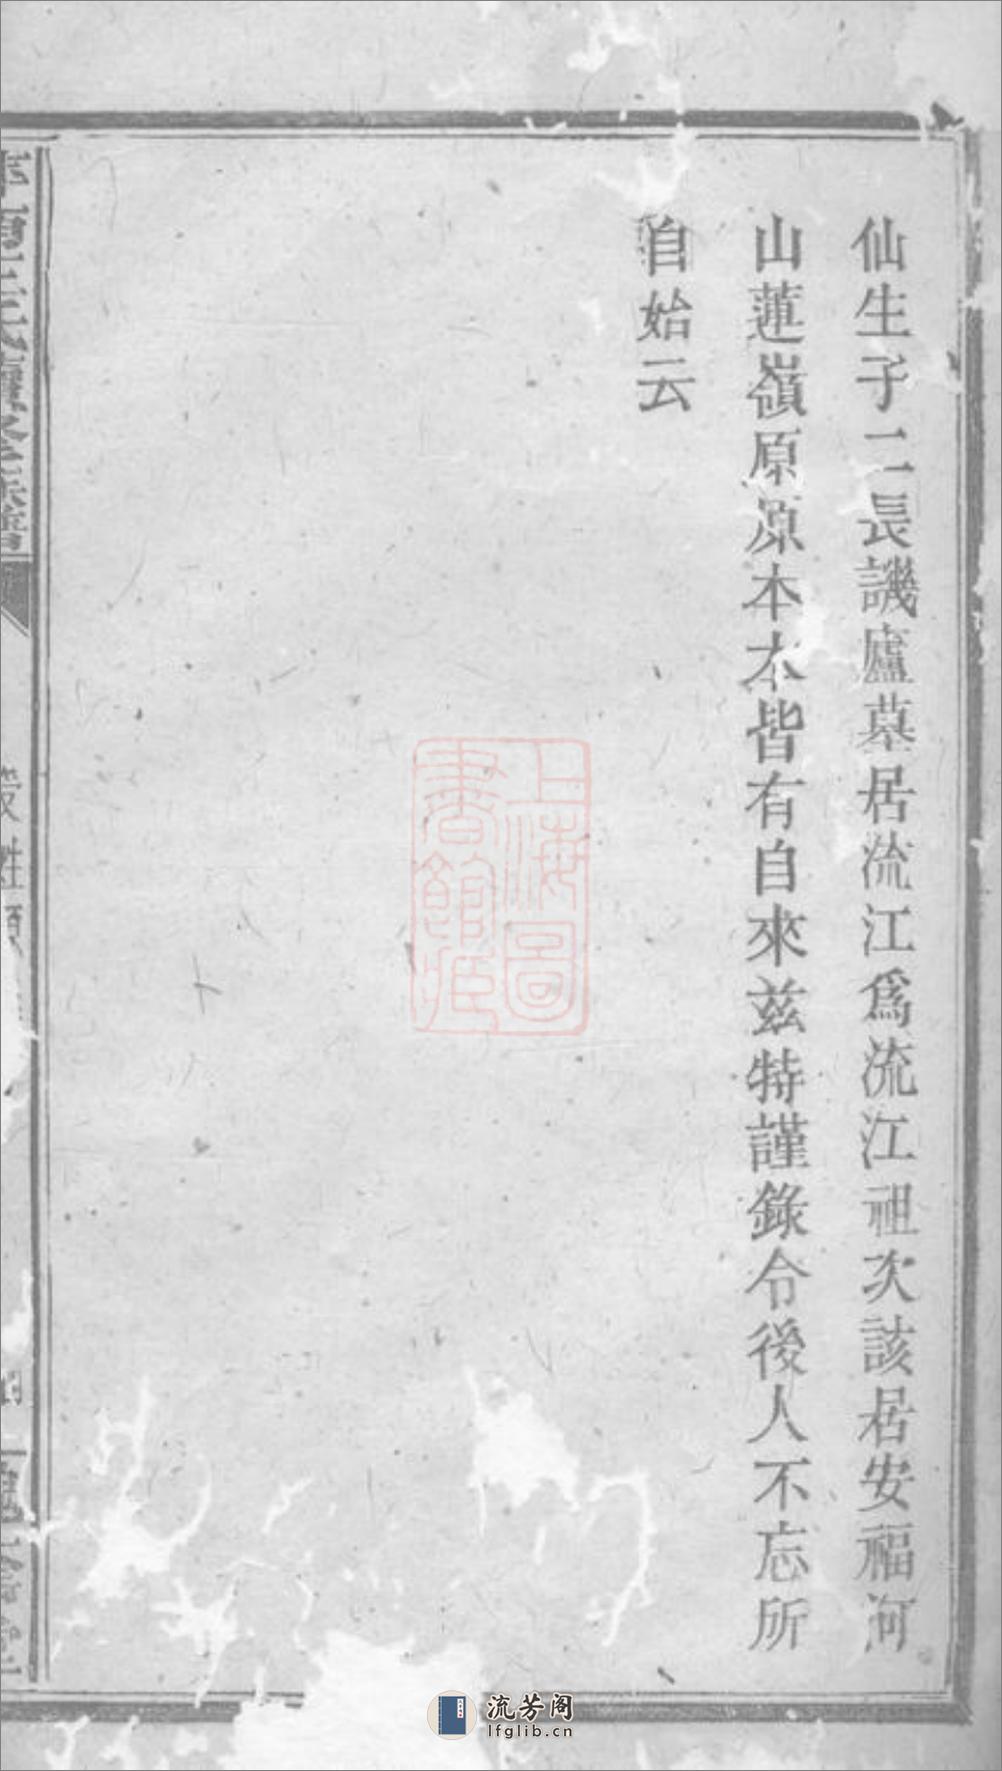 仙生子二長譏廬墓居流江爲流江祖次該居安福河
山蓮嶺原原本本皆有自來兹特謹錄令後人不忘所
自始云
上海圖
書館藏
流芳阁
lfglib.cn